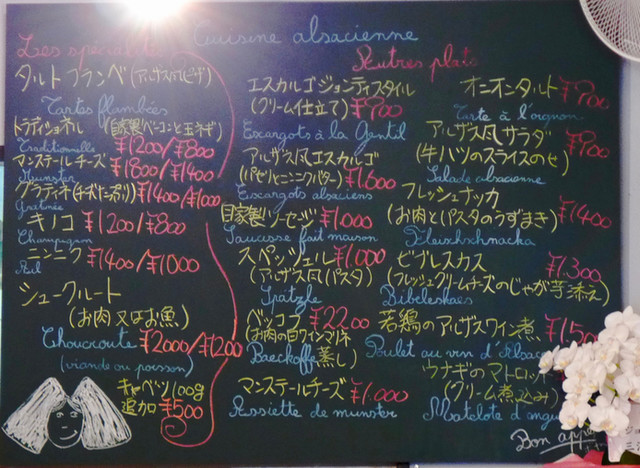 Cuisine alsacienne
Les spécial
タルトフランベ (アルザス風ピザ)
Tartes flambées
トラディショネル (自家製ベーコンと玉ネギ)
Traditionnelle ¥1200/¥800
マンステールチーズ ¥1800/¥1400
Munster
グラティネ (チーズたっぷり) ¥1400/¥1000
Gratinée
キノコ ¥1200/¥800
Champignon
ニンニク ¥1400/¥1000
Ail
シュークルート
(お肉又はお魚)
Choucroute ¥2000/¥1200
(viande ou poisson)
キャベツ100g
追加 ¥500
Autres plats
エスカルゴジョンティスタイル
(クリーム仕立て) ¥900
Escargots à la Gentil
アルザス風エスカルゴ
(パセリとニンニクバター) ¥1.600
Escargots alsaciens
自家製ソーセージ ¥1.000
Saucisse fait maison
スペッツェル ¥1.000
(アルザス風パスタ)
Spätzle
ベッコフ ¥2200
(お肉の白ワインマリネ
Baeckoffe 蒸し)
マンステールチーズ ¥1.000
Assiette de munster
オニオンタルト ¥900
Tarte à l'oignon
アルザス風サラダ ¥900
(牛ハツのスライスのせ)
Salade alsacienne
フレッシュナッカ
(お肉とパスタのうずまき) ¥1400
Fleischschnacka
ビブレスカス ¥1.300
(フレッシュクリームチーズのじゃが芋添え)
Bibeleskaes
若鶏のアルザスワイン煮 ¥1.5
Poulet au vin d'Alsac
ウナギのマトロット
(クリーム煮込み)
Matelote d'angu
Bon appé